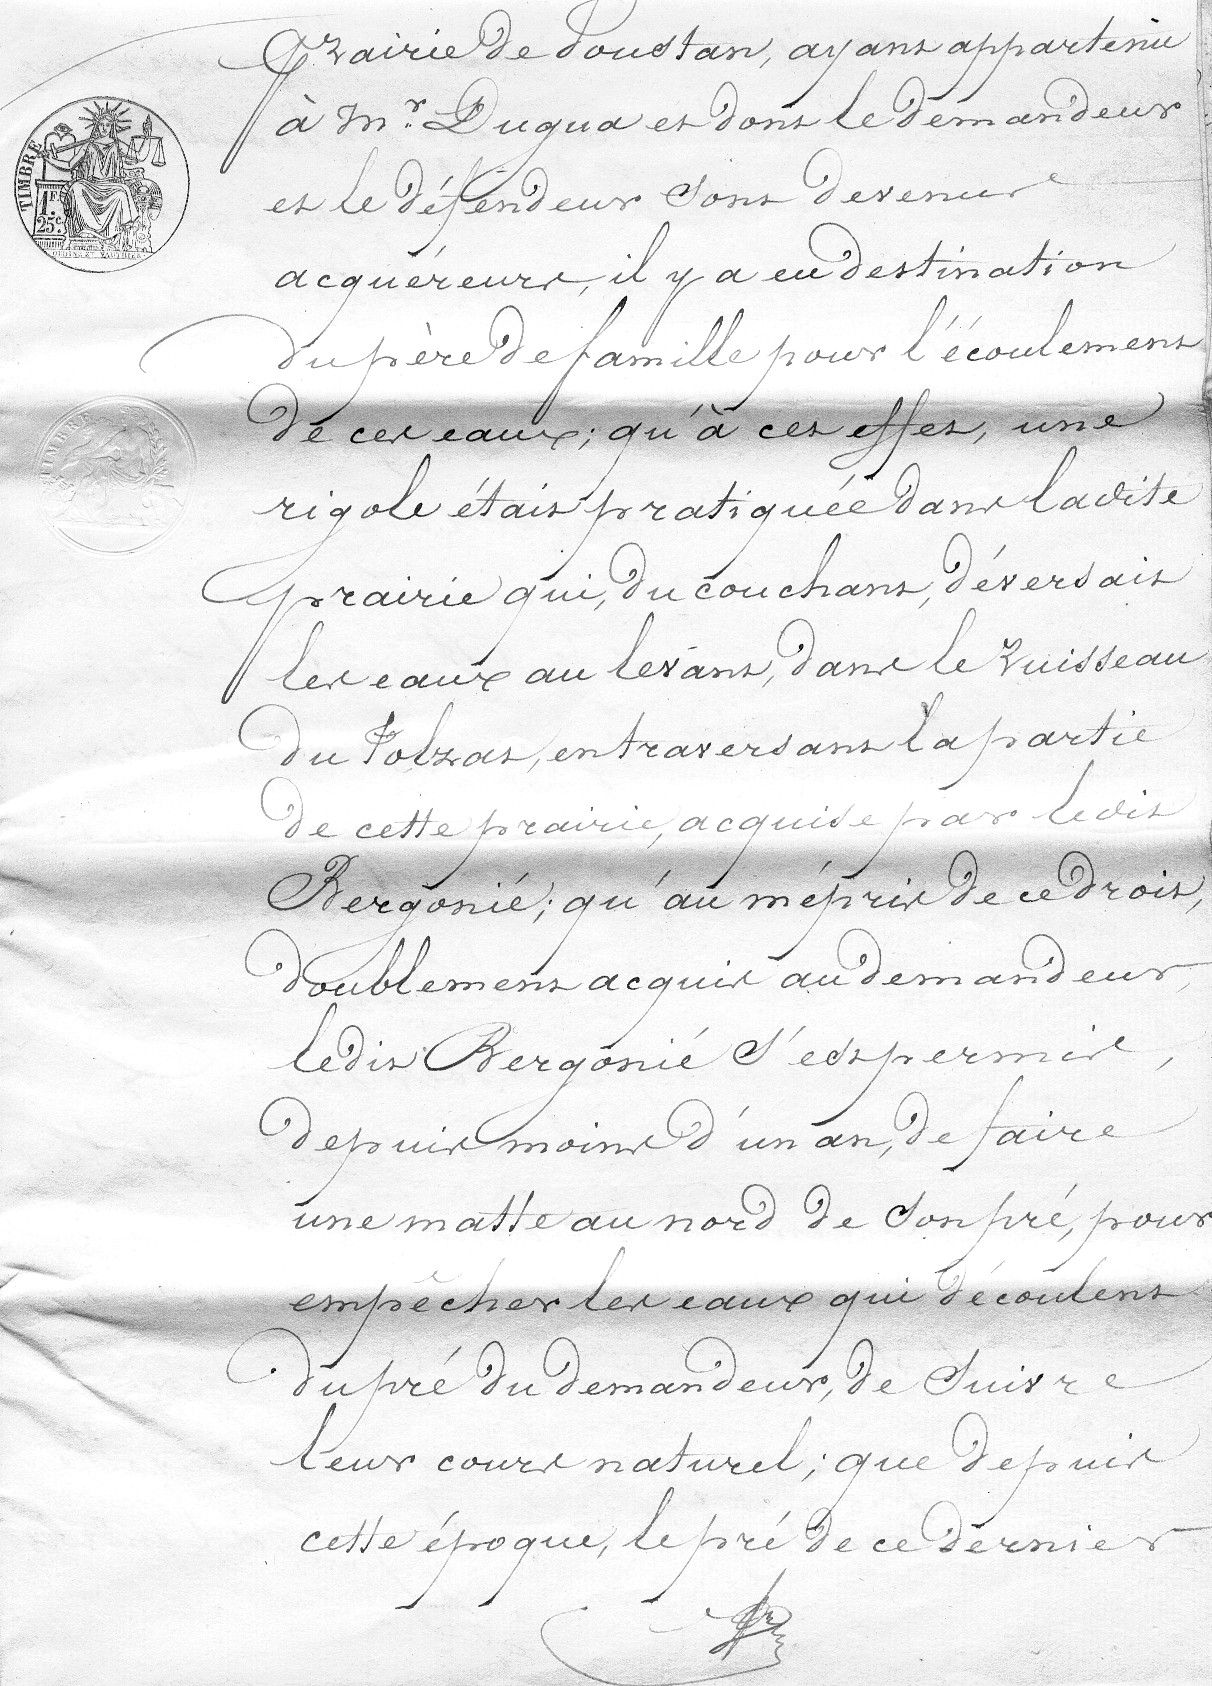 prairie de doustan, ayant appartenu
à Mr. Dugua et dont le demandeur
et le défendeur sont devenus
acquéreurs, il y a eu destination
du père de famille pour l'écoulement
de ces eaux; qu'à cet effet, une
rigole était pratiquée dans ladite
prairie qui, du couchant, déversait
les eaux au levant, dans le ruisseau
du Tolzat, en traversant la partie
de cette prairie, acquise par ledit
Bergonié; qu'au mépris de ce droit,
doublement acquis au demandeur,
ledit Bergonié s'est permis,
depuis moins d'un an, de faire
une matte au nord de son pré, pour
empêcher les eaux qui découlent
du pré du demandeur, de suivre
leur cours naturel; que depuis
cette époque, le pré de ce dernier
TIMBRE
1F.
25c.
TIMBRE